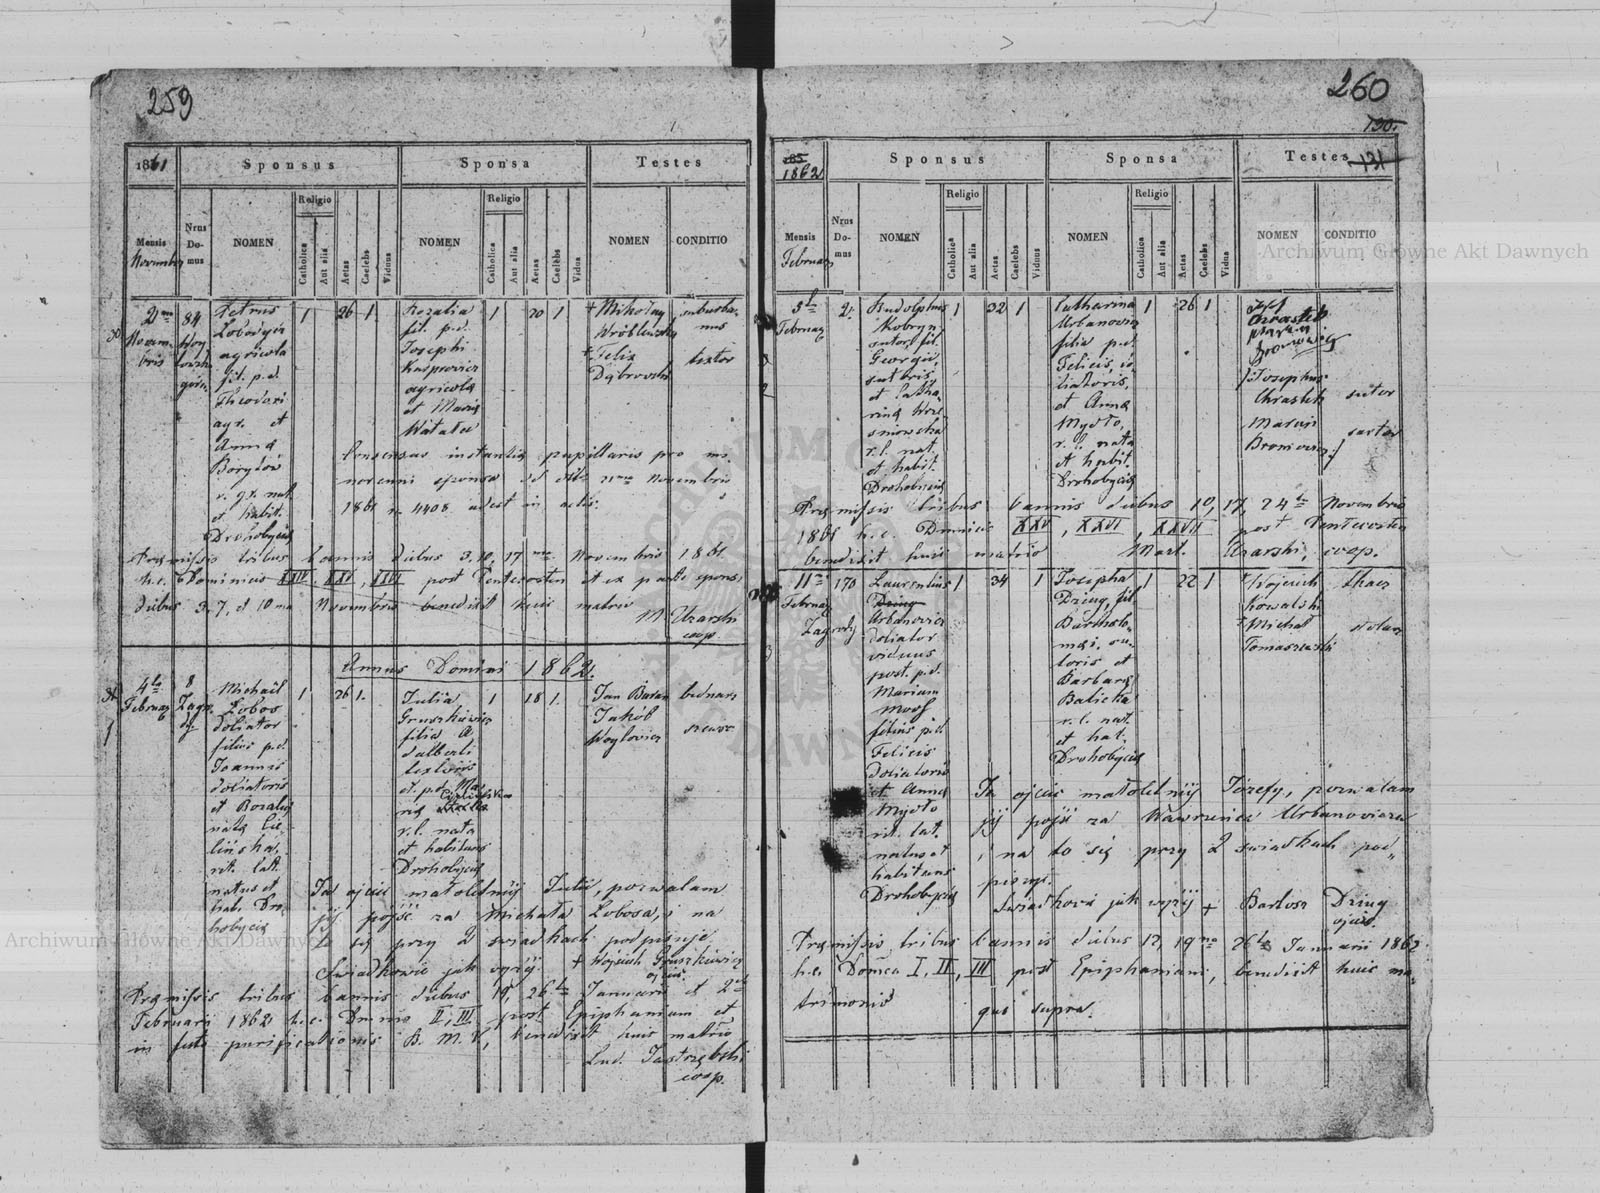 259
1861
Sponsus
Sponsa
Testes
Mensis
Novembris
Nrus
Do-
mus
NOMEN
Religio
Catholica
Aut alia
Aetas
Caelebs
Viduus
NOMEN
Religio
Catholica
Aut alia
Aetas
Caelebs
Vidua
NOMEN
CONDITIO
Novem-
bris
84
Petrus
agricola
fil. p.d.
Theodori
agr. et
Anna
et habit.
Drohobycia
1
26
1
Rozalia
fil. p.d.
Josephi
agricola
et Maria
1
20
1
+ Mikołaj
Wróblewski
+ Felix
Dąbrowski
suburba-
nus
textor
Consensus instantia pupillaris pro mi-
norenni sponsa
Novembris
1861 n. 4408 adest in actis.
Præmissis tribus bannis diebus 3, 10, 17 Novembris 1861
h.e. Dominicis XXIV, XXV, XXVI post Pentecosten et ex parte sponsi
diebus 3, 7, et 10ma Novembris benedixit huic matrio
M. Uzarski
coop.
Annus Domini 1862.
4ta
Februar
8
Michaël
Łobos
doliator
filius p.d.
Joannis
doliatoris
et Rozalia
natus et
hab. Dro-
hobycia
1
26
1
Julia
Gruszkiewicz
filia A-
dalberti
et p.d. Ma-
ria
r.l. nata
et habitans
Drohobycia
1
18
1
Jan Baran
Jakób
Woylovicz
bednarz
szewc
Ja ojciec małoletniéj Julii, pozwalam
jéj pojść za Michała Łobosa, i na
to się przy 2 świadkach podpisuję.
Świadkowie jak wyżéj + Wojciech Gruszkiewicz
ojciec
Præmissis tribus bannis diebus 19, 26ta Januarii et 2da
Februarii 1862 h.e. Dnnis II, III post Epiphaniam et
in festo purificationis B. M. V., benedixit huic matrio
Lud. Jastrzębski
coop.
260
130.
131
185
1862
Sponsus
Sponsa
Testes
Mensis
Februar
Nrus
Do-
mus
NOMEN
Religio
Catholica
Aut alia
Aetas
Caelebs
Viduus
NOMEN
Religio
Catholica
Aut alia
Aetas
Caelebs
Vidua
NOMEN
CONDITIO
Februar
Rudolphus
Kobryn
sutor, fil.
Georgii,
sutoris,
et Catha-
rina Wre-
śniowska
r.l. nat.
et habit.
Drohobycia
1
32
1
Catharina
Urbanovicz
filia p.d.
Felicis, do-
liatoris,
et Anna
Mydło,
r.l. nata
et habit.
Drohobycia
1
26
1
Chrastek
Josephus
Chrastek
Marcin
sutor
sartor
Præmissis tribus bannis diebus 10, 17, 24ta Novembris
1861 h.e. Dmnicis XXV, XXVI, XXVII post Pentecosten
benedixit huic matrio Mart. Uzarski, coop.
11
Februar
170
Zagrody
Laurentius
Dziug
Urbanovicz
doliator
viduus
post. p.d.
Mariam
filius p.d.
Felicis
doliatoris
et Anna
Mydło
rit. lat.
natus et
habitans
Drohobycia
1
34
1
Josepha
Dziug, fil.
Bartholo-
mæi, su-
toris et
Barbara
Balicka
r.l. nat.
et hat.
Drohobycia
1
22
1
+ Wojciech
Kowalski
+ Michał
Tomaszewski
tkacz
stolarz
Ja ojciec małoletniéj Józefy, pozwalam
jéj pojść za Wawrzeńca Urbanovicza
i na to się przy 2 świadkach pod-
piszę.
Świadkowi jak wyżéj + Bartosz Dziug
ojciec
Præmissis tribus bannis diebus 12, 19na 26ta Januarii 1862
h.e. Domca I, II, III post Epiphaniam, benedixit huic ma-
trimonio
qui supra.
Archiwum Główne Akt Dawnych
Archiwum Główne Akt Dawnych